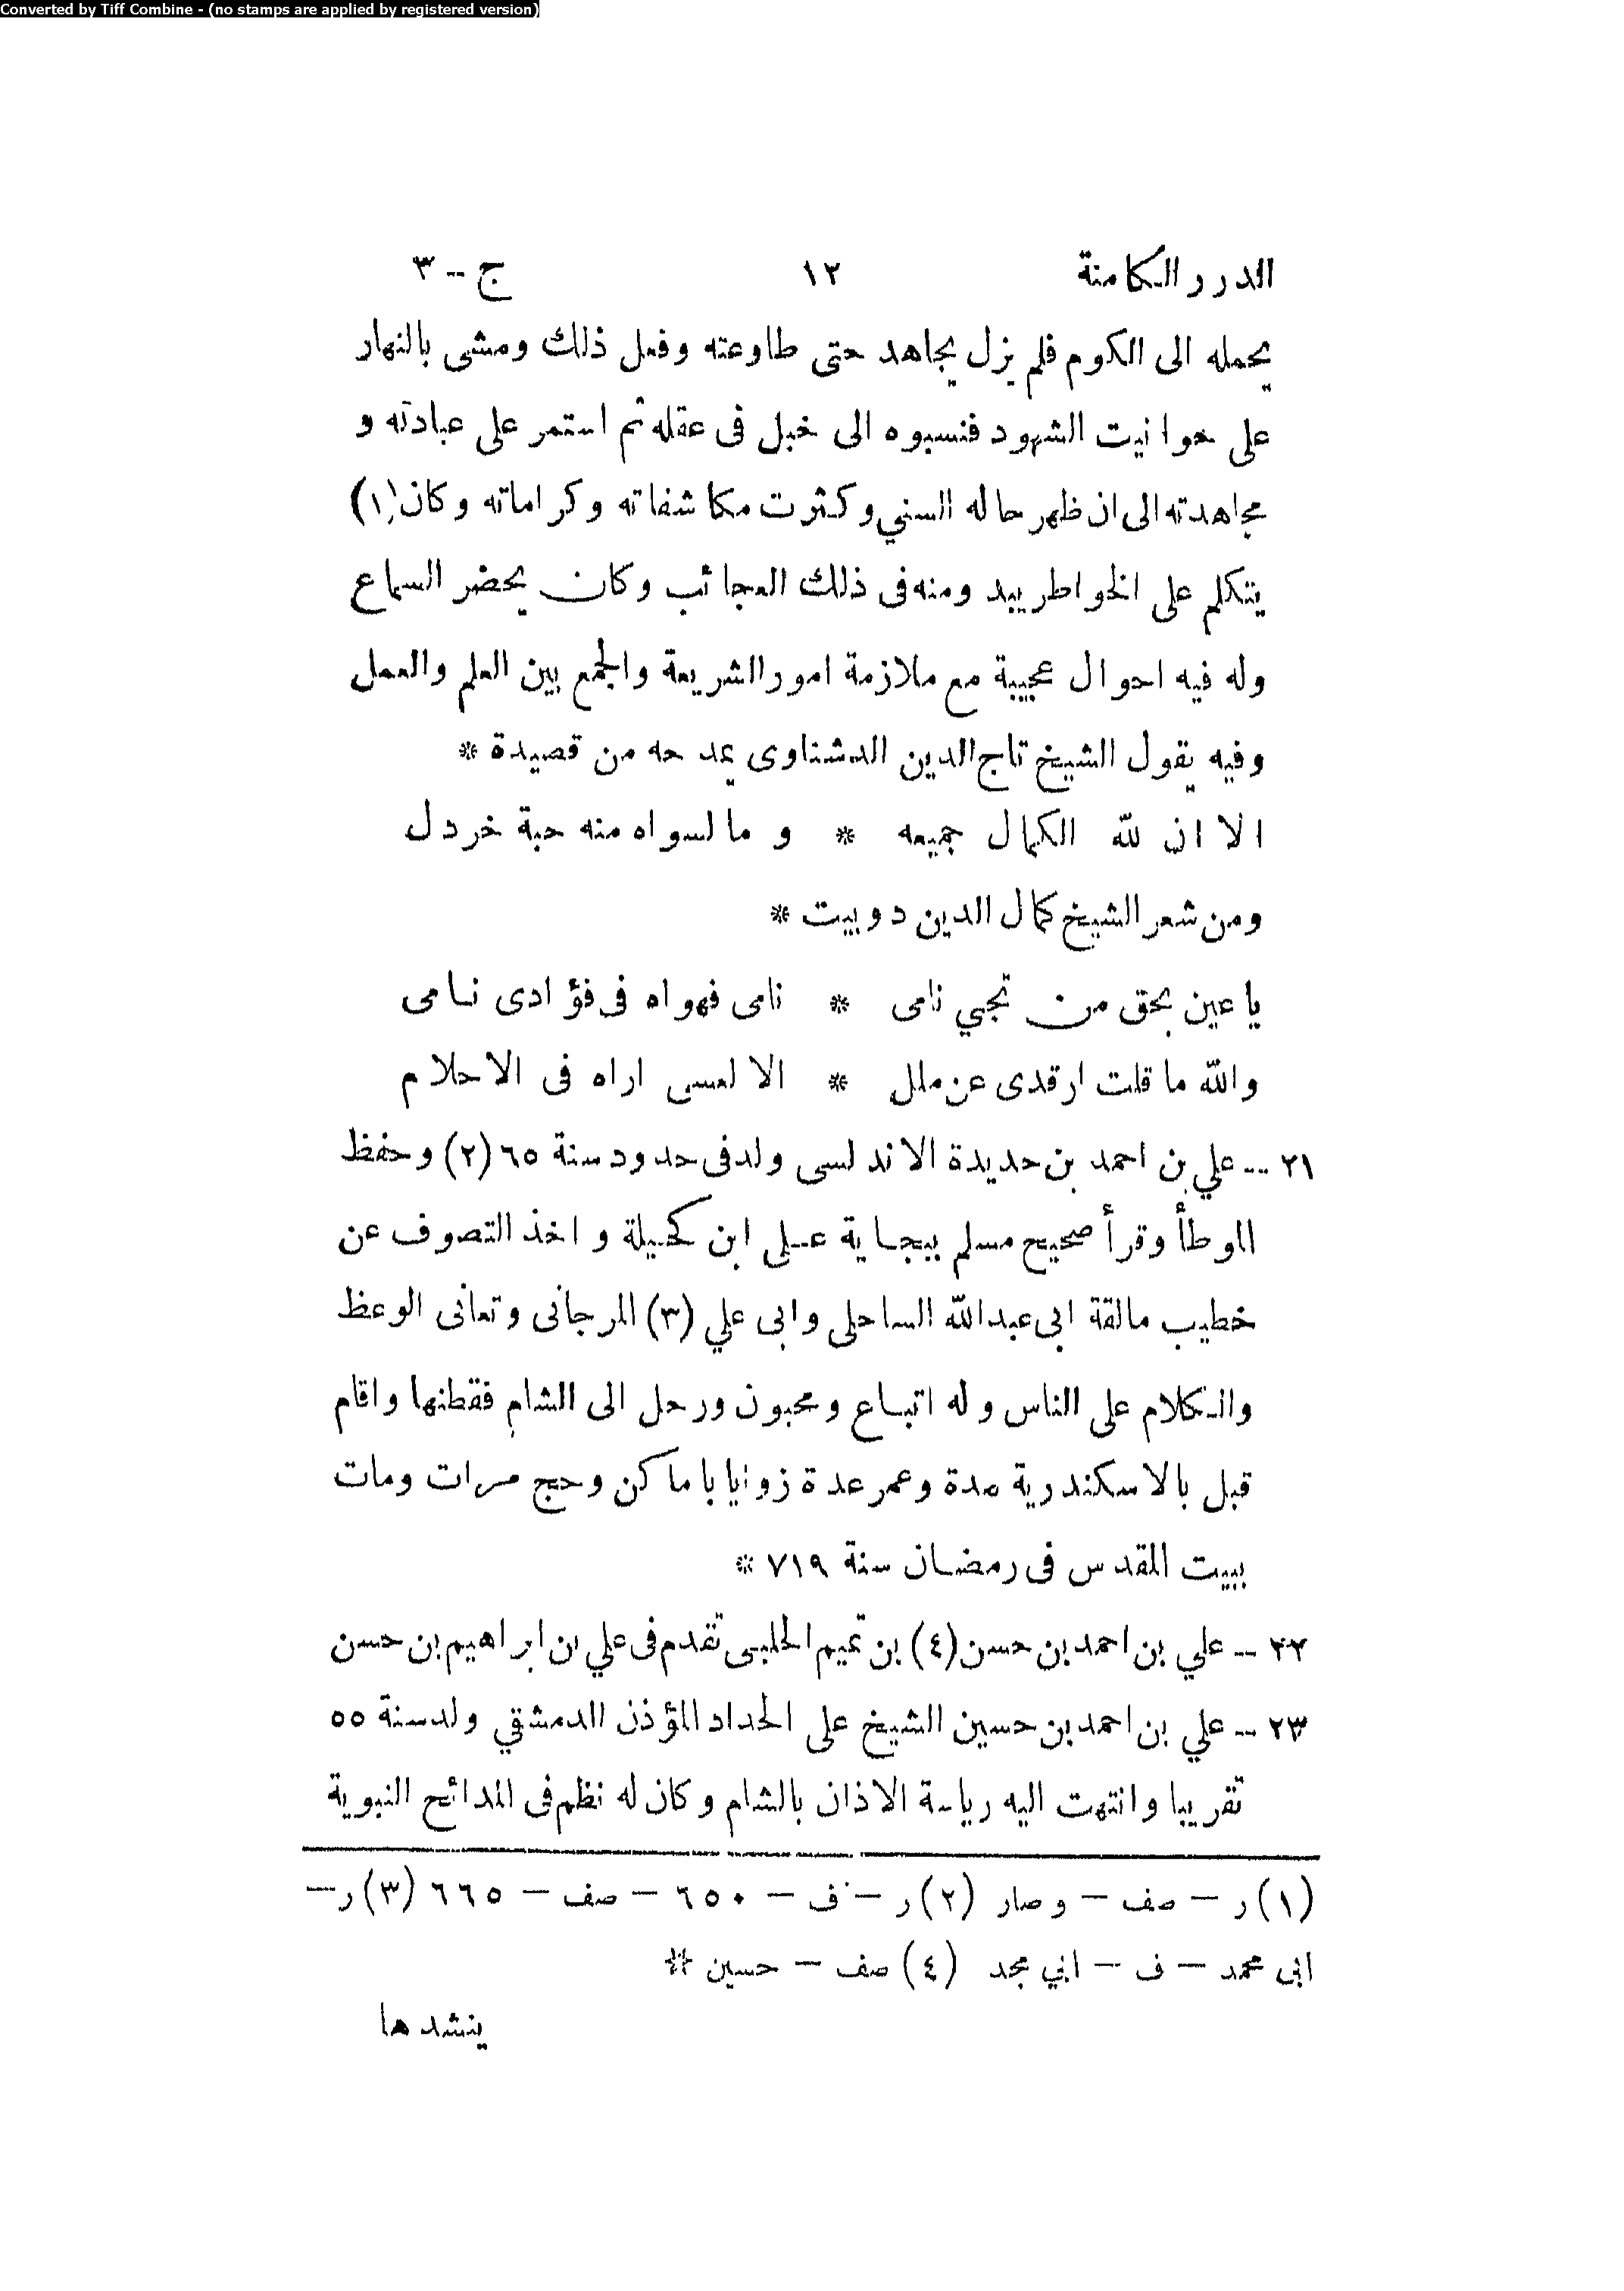 Converted by Tiff Combine - (no stamps are applied by registered version)
الدرر الكامنة ١٢ ج -- ٣
يحمله الى الكوم فلم يزل يجاهد حتى طاوعته وفعل ذلك ومشى بالنهار
على حوانيت الشهود فنسبوه الى خبل فى عقله ثم استمر على عبادته و
مجاهدته الى ان ظهر حاله السني وكثرت مكاشفاته وكراماته وكان (١)
يتكلم على الخواطر بيد ومنه فى ذلك العجائب وكان يحضر السماع
وله فيه احوال عجيبة مع ملازمة امور الشريعة والجمع بين العلم والعمل
وفيه يقول الشيخ تاج الدين الدشناوى يمدحه من قصيدة *
الا ان لله الكمال جميعه * و ما لسواه منه حبة خردل
ومن شعر الشيخ كمال الدين دوبيت *
يا عين بحق من تجبي نامى * نامى فهواه فى فؤادى نامى
والله ما قلت ارقدى عن ملل * الا لعسى اراه فى الاحلام
٢١ -- علي بن احمد بن حديدة الاندلسى ولد فى حدود سنة ٦٥ (٢) وحفظ
الموطأ وقرأ صحيح مسلم ببجاية على ابن كحيلة و اخذ التصوف عن
خطيب مالقة ابى عبد الله الساحلى وابى علي (٣) المرجانى وتعانى الوعظ
والكلام على الناس وله اتباع ومحبون ورحل الى الشام فقطنها واقام
قبل بالاسكندرية مدة وعمر عدة زوايا باماكن وحج مرات ومات
ببيت المقدس فى رمضان سنة ٧١٩ *
٢٢ -- علي بن احمد بن حسن (٤) بن تميم الحلبى تقدم فى علي بن ابراهيم بن حسن
٢٣ -- علي بن احمد بن حسين الشيخ على الحداد المؤذن الدمشقي ولد سنة ٥٥
تقريبا وانتهت اليه رياسة الاذان بالشام وكان له نظم فى المدائح النبوية
(١) ر - صف - وصار (٢) ر - ف - ٦٥٠ - صف - ٦٦٥ (٣) ر -
ابى محمد - ف - ابي مجد (٤) صف - حسين *
ينشدها